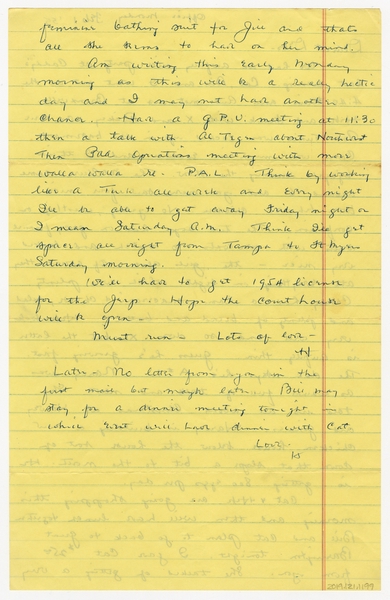 bathing suit for Jill and thats
all she seems to have on her mind.
Am writing this early Monday
morning as this will be a really hectic
day and I may not have another
chance. Have a G.P.U. meeting at 11:30
then a talk with Al about Northwest
Then Pad Operations meeting with more
walla walla re - P.A.L. Think by working
like a Turk all week and every night
I'll be able to get away Friday night or
I mean Saturday A.M. Think I'll get
space all right from Tampa to Ft Myers
Saturday morning.
We'll have to get 1954 license
for the Jeep. Hope the court house
will be open -
Must run - Lots of love -
H
Later - No letter from you in the
first mail but maybe later. Bill may
stay for a dinner meeting tonight in
which will have dinner with Cat.
Love
H
2019.121.1199